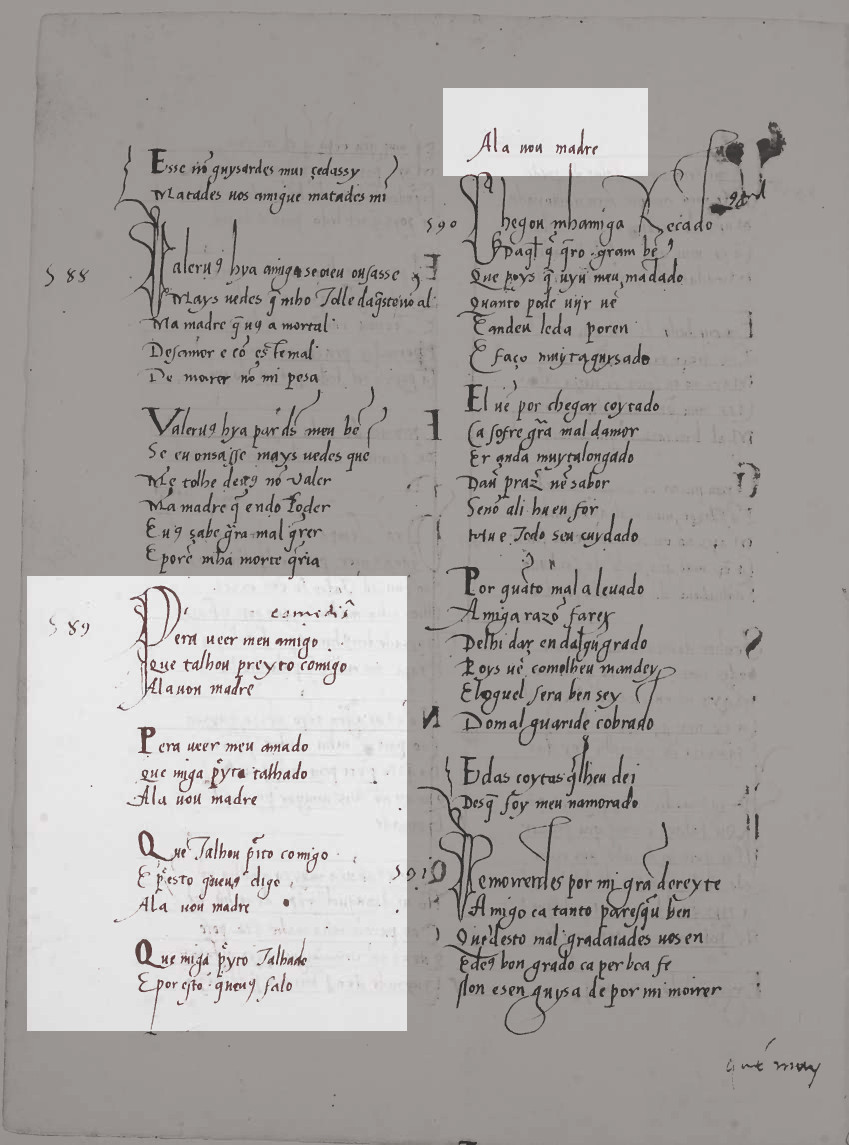 Esse nō guysardes mui çedassy
Matades uos amigue matades mī
588
Ualerus hya amiga seomeu ousasse
Mays uedes q̄ mho Tolle daq̄sto nō al
Ma madre q̄ us a mortal
Desamor e cō esTemal
De morrer nō mi pesa
Valerus hya par ds meu bē
Se eu ousasse mays uedes que
Me tolhe deus nō ualer
Ma madre q̄ endo Poder
E us sabe gra mal q̄rer
E porē mha morte q̄ria
589
Pera ueer meu amigo
Que talhou preyto comigo
Ala uou madre
Pera ueer meu amado
Que miga pyto talhado
Ala uou madre
Que Talhou pito comigo
E pesto queus digo
Ala uou madre
Que miga pyto Talhado
E por esto queus falo
Ala uou madre
590
Chegou mhamiga Recado
Daql q̄ q̄ro gram bē
Que poys q̄ uyu meu madado
Quanto pode uijr uē
E andeu leda poren
E faço muytaguysado
El uē por chegar coytado
Ca sofre grā mal damor
Er anda muytalongado
Dau praz nē sabor
Senō ali hu en for
Hu e Todo seu cuydado
Por quāto mal a leuado
Amiga razō farey
Delhi dar en dalgu grado
Poys uē comolheu mandey
E loguel sera ben sey
Domal guaride cobrado
E das coytas q̄lheu dei
Desq̄ foy meu namorado
591
Remorrerdes por mi grā dereyte
Amigo ca tanto paresqu ben
Que desto mal gradaiades uos en
E deus bon grado ca per boa fe
Non e sen guysa de por mi morrer
que moy